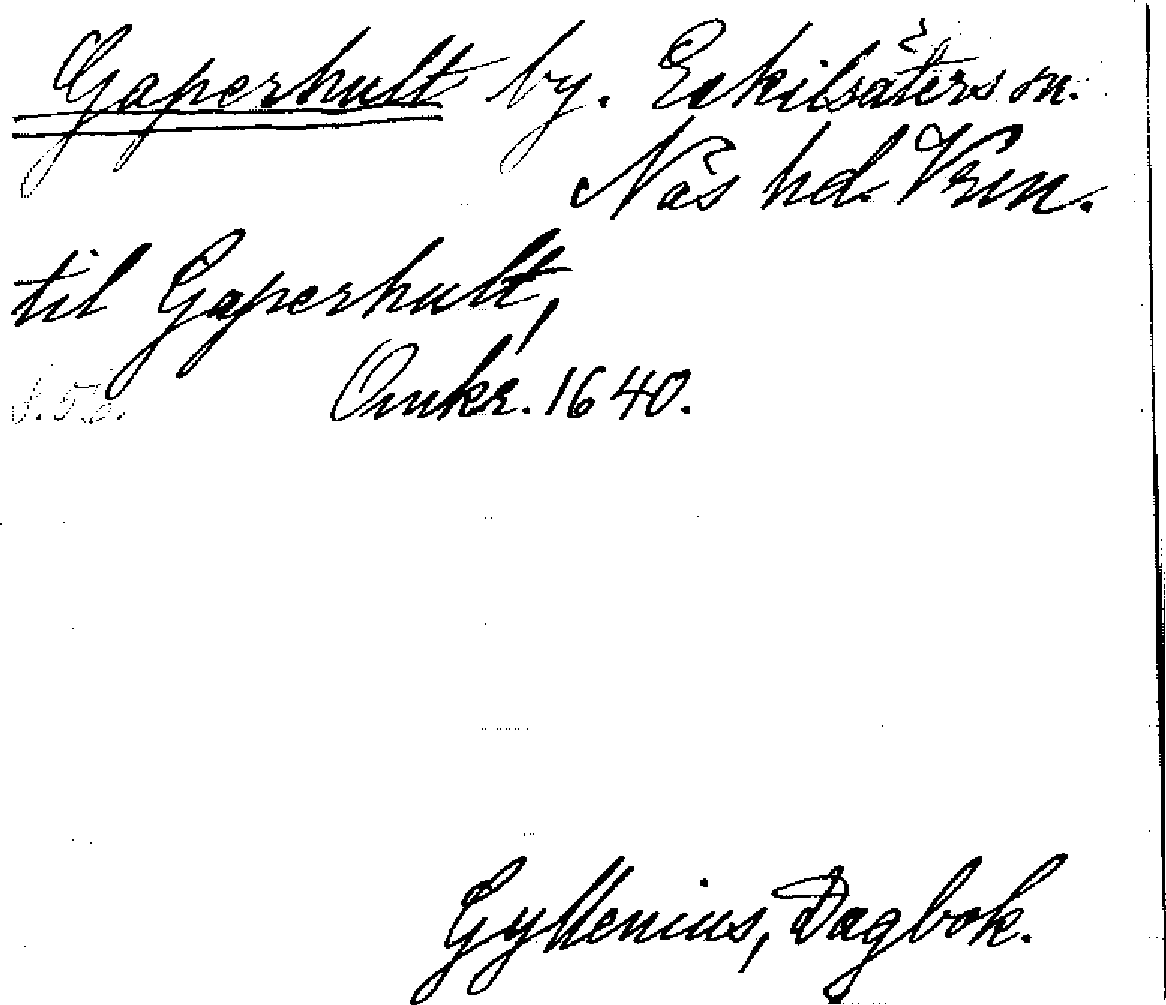 Gaperhult by. Eskilsäters sn.
Näs hd. Vrm.
til Gaperhult,
Omkr. 1640.
Gyllenius, Dagbok.